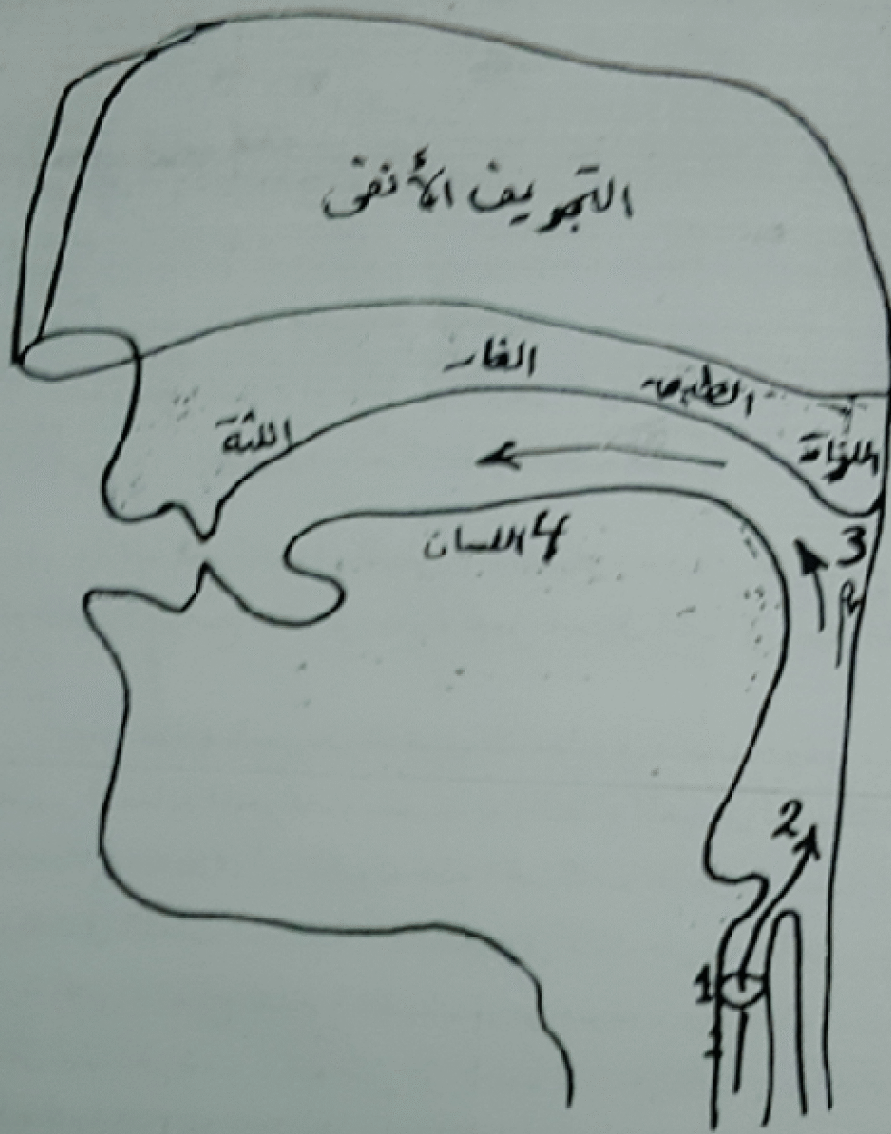 التجويف الأنفى
الغار
الطبق
اللهاة
اللثة
3
4 اللسان
2
1